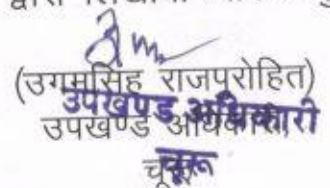 (उगमसिंह राजपुरोहित)
उपखण्ड अधिकारी
उपखण्ड अधिकारी
चूरू
चूरू